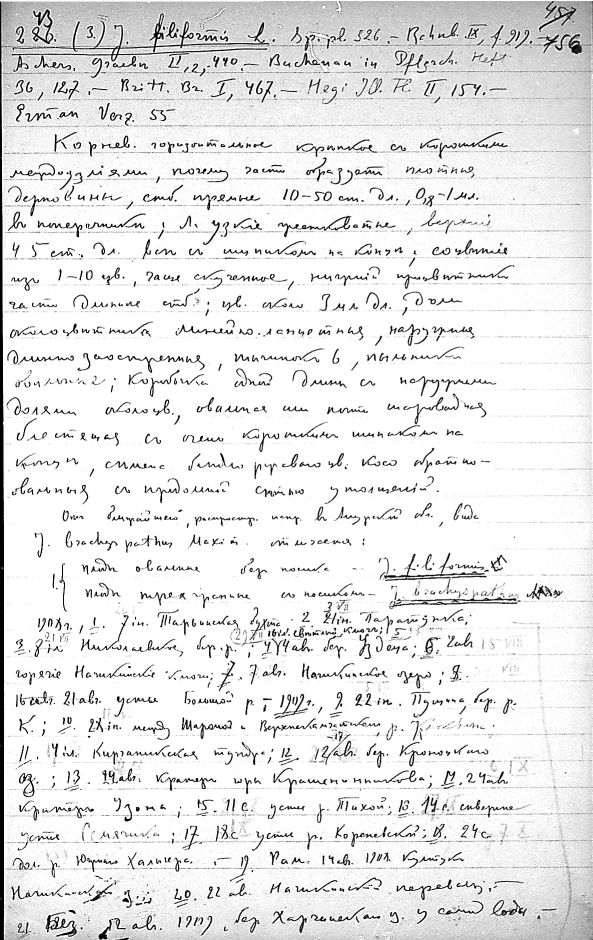 457
226. (3.) J. filiformis L. Sp. pl. 326. – Rchnb. IX, f 919. – 756
Aschers. Graebn. II, 2, 440. – Buchanau in Pflzrch. Heft
36, 127. – Britt. Br. I, 467. – Hegi Ill. Fl. II, 154. –
Erman Verz. 55
Корнев. горизонтальное крѣпкое съ короткими
междоузліями, почему часто образуетъ плотныя
дерновины, стб. прямые 10–50 ст. дл., 0,8–1 мл.
въ поперечникѣ; л. узкіе желобчатые, верхній
4 5 ст. дл. съ шипикомъ на концѣ; соцвѣтіе
изъ 1–10 цв., чаще скученное, нижній прицвѣтникъ
часто длиннѣе стб.; цв. около 3 мл дл., доли
околоцвѣтника линейно-ланцетныя, наружныя
длинно заостренныя, тычинокъ 6, пыльники
овальные; коробочка одной длины съ наружными
долями околоцв., овальная или почти шаровидная
блестящая съ очень короткимъ шипикомъ на
концѣ, сѣмена блѣдно ржаваго цв. косо обратно-
овальныя съ продольной сѣтью утолщеній.
Отъ ближайшей, распростр. напр. въ Амурской обл., вида
J. brachyspathus Maxim. отличается:
1. { плоды овальные безъ носика – J. filiformis
плоды трехгранные съ носикомъ – J. brachyspathus
1908 г., 1. 7 іп. Тарьинская бухта. 2. 21 іп. Паратунка;
3. 8 іл. Николаевское, бер. р.; 4 4 авг. бер. 6. 2 авг
горячіе Начикинскіе ключи; 7. 7 авг. Начикинское озеро; 8.
16 авг. 21 авг. устье Большой р. – 1909 г., 9. 22 іп. Пущина, бер. р.
К.; 10. 28 іп. между Шаромой и Верхнекамчатскомъ р.
11. 14 іл. Кирганикская тундра; 12. 12 авг. бер. Кроноцкаго
оз.; 13. 14 авг. кратеръ горы Крашенинникова; 14. 24 авг
кратеръ Узона; 15. 11 с. устье р. Тихой; 16. 14 с. сѣвернѣе
устья Семячика; 17 18 с устье р. Кореневской; 18. 24 с.
дол. р. Халигера. – 19. Рам. 14 авг. 1908. Култукъ
20. 22 авг. Начикинскій перевалъ. –
21. Без. 12 авг. 1909, бер. Харчинскаго оз. у самой воды. –